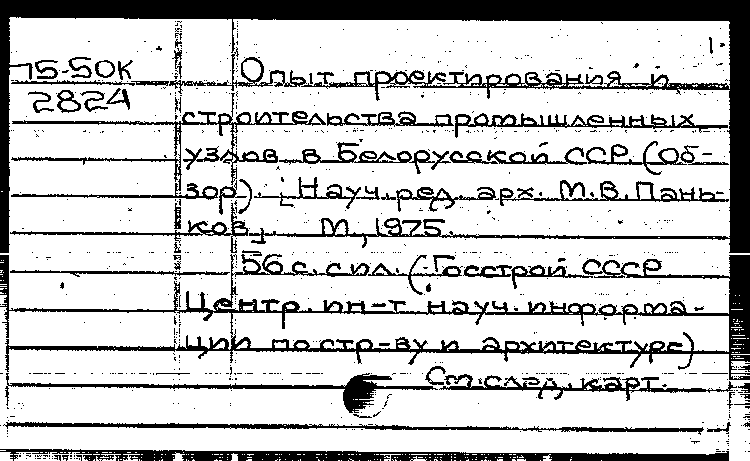 1.
П5-50К
2824
Опыт проектирования и
строительства промышленных
узлов в Белорусской ССР. (Об-
зор). [Науч.ред. арх. М.В.Пань-
ков]. М., 1975.
56 с. с ил. (Госстрой СССР
Центр. ин-т науч. информа-
ции по стр-ву и архитектуре)
См.след.карт.